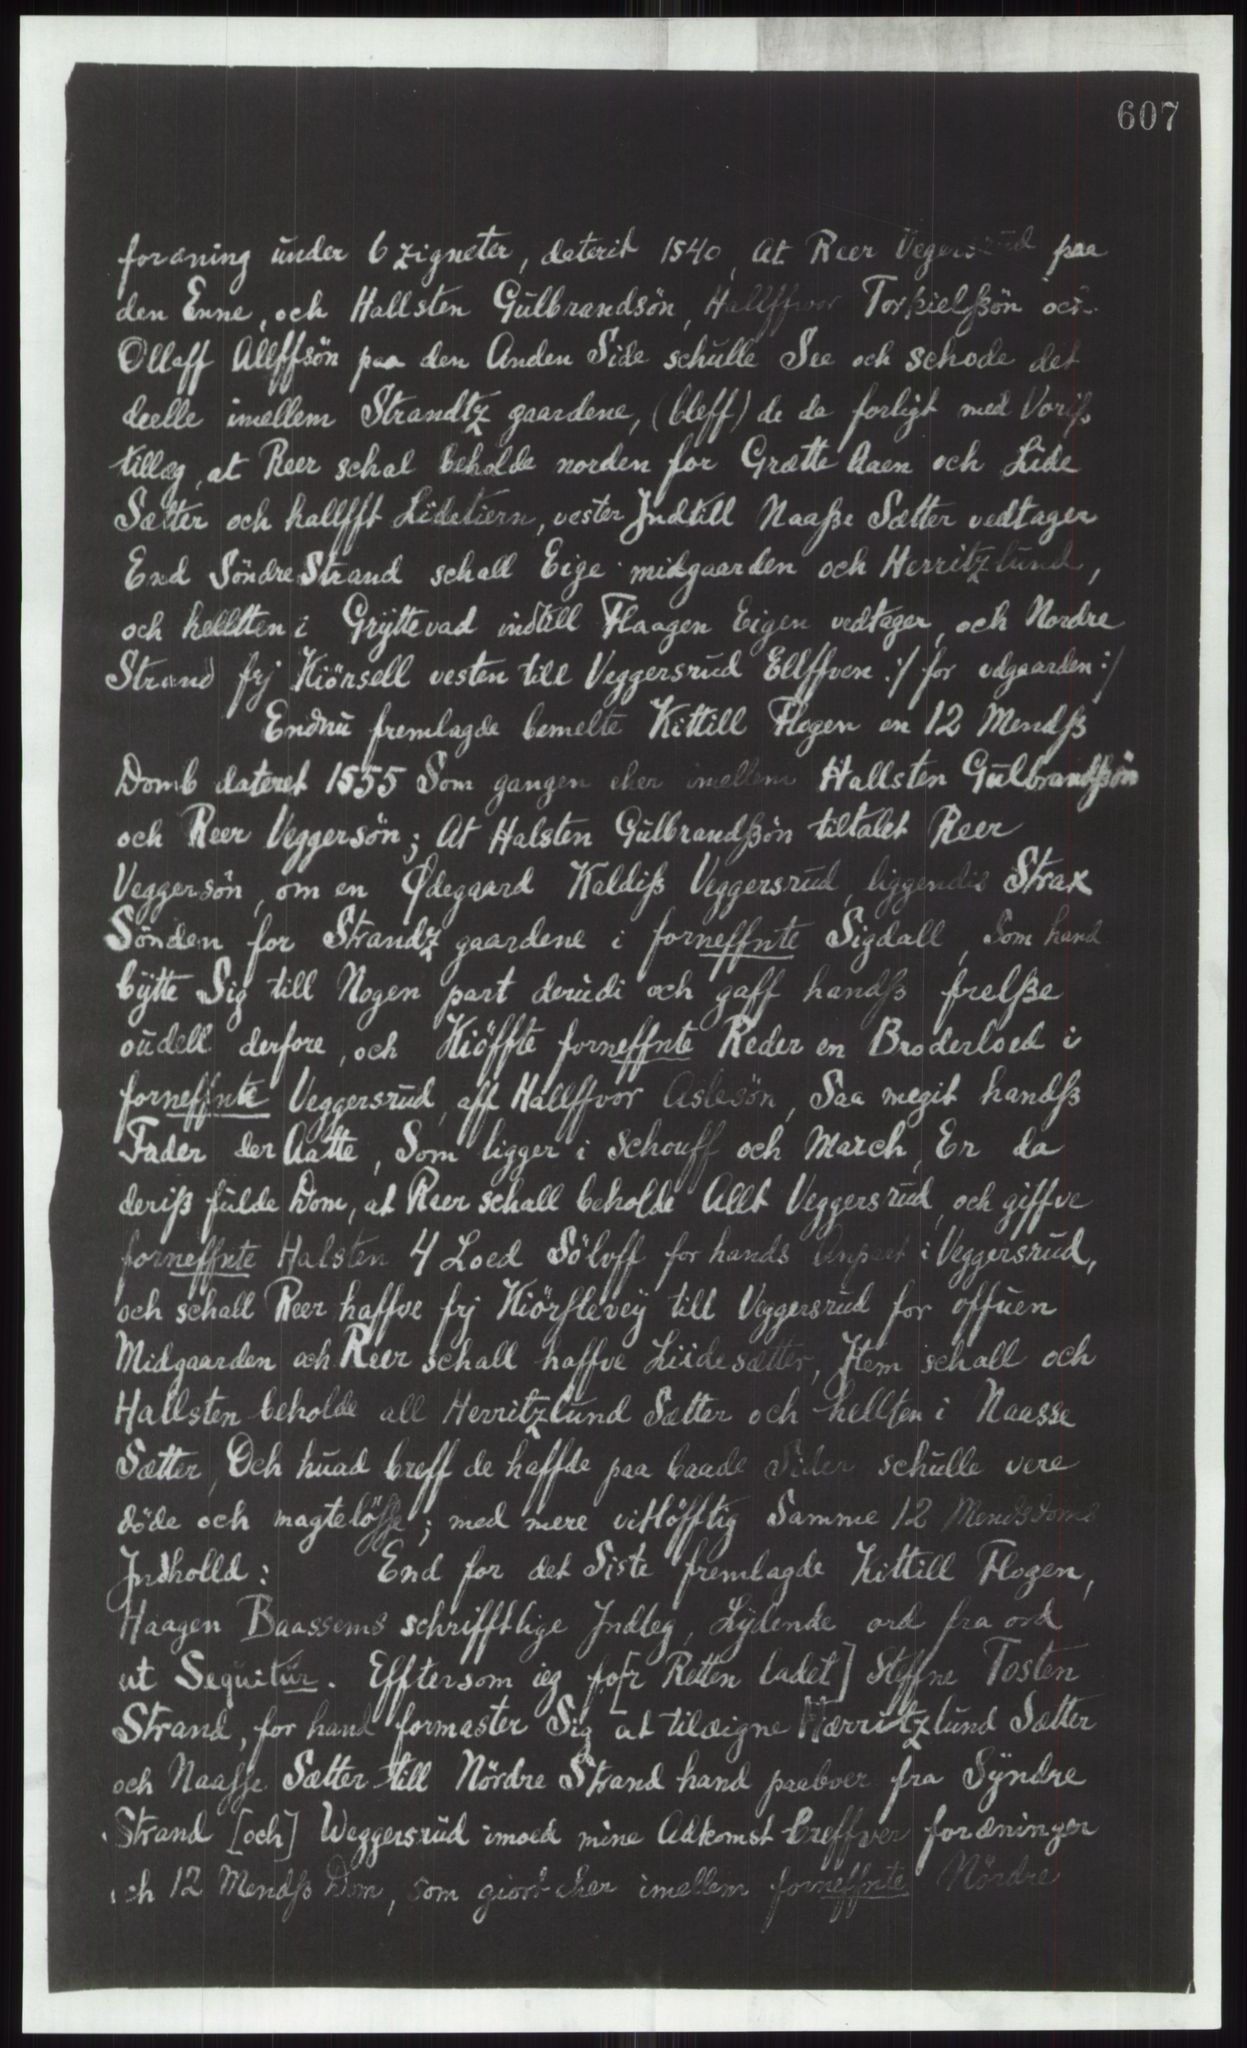 607
foræning ünder 6 zigneter, daterit 1540, At Reer Vegersrüd paa
den Enne, och Hallsten Gülbrandsön, Hallffvor Torkielßön och
Ollaff Allffsön paa den Anden Side schülle See och schode det
deelle imellem Strandtz gaardene, (bleff) de da forligt med Voriß
tillæg, at Reer schal beholde norden for Grætte Aaen och Lide
Sætter och hallfft Lidetiern, vester Jndtill Naaße Sætter vedtager
End Söndre Strand schall Eige midgaarden och Herritzlünd,
och hellten i Grÿttevad indtill Flaagen Eigen vedtager, och Nordre
Strand frj Kiörsell vesten till Veggersrüd Ellffven :/ for udgaarden :/
Endnü fremlagde bemelte Kittill Flogen en 12 Mendß
Domb dateret 1555 Som gangen eher imellem Hallsten Gülbrandßön
och Reer Veggersön; At Halsten Gülbrandßön tiltalet Reer
Veggersön, om en Ødegaard Kaldiß Veggersrüd, liggendis Strax
Sönden for Strandz gaardene i forneffnte Sigdall, Som hand
bÿtte Sig till Nogen part derüdi och gaff handß frelße
oüdell derfore, och Kiöffte forneffnte Reder en Broderloed i
forneffnte Veggersrüd, aff Hallffvor Aslesön, Saa megit handß
Fader der Aatte, Som ligger i Schouff och March, Er da
deriß fülde Dom, at Reer schall beholde Allt Veggersrüd, och giffve
forneffnte Halsten 4 Loed Sölvff for hands Anpart i Veggersrüd,
och schall Reer haffve frj Kiörslevej till Veggersrüd for offuen
Midgaarden och Reer schall haffve Liidesætter, Jtem schall och
Hallsten beholde all Herritzlund Sætter och hellten i Naasse
Sætter, Och huad breff de haffde paa baade Sider schülle vere
döde och magtelöße; med mere vitlöfftig Samme 12 Mendsdoms
Jndholld: End for det Siste fremlagde Kittill Flogen,
Haagen Baassems schrifftlige Jndleg, Lÿdende ord fra ord
ut Seqüitür. Efftersom ieg fo[r Retten ladet] Steffne Tosten
Strand, for hand formaster Sig at tilæigne Hærritzlund Sætter
och Naasse Sætter till Nördre Strand hand paaboer fra Sÿndre
Strand [och] Weggersrüd imoed mine Adkomst breffver foræninger
och 12 Mendß Dom, som giort eher imellem forneffnte Nördre